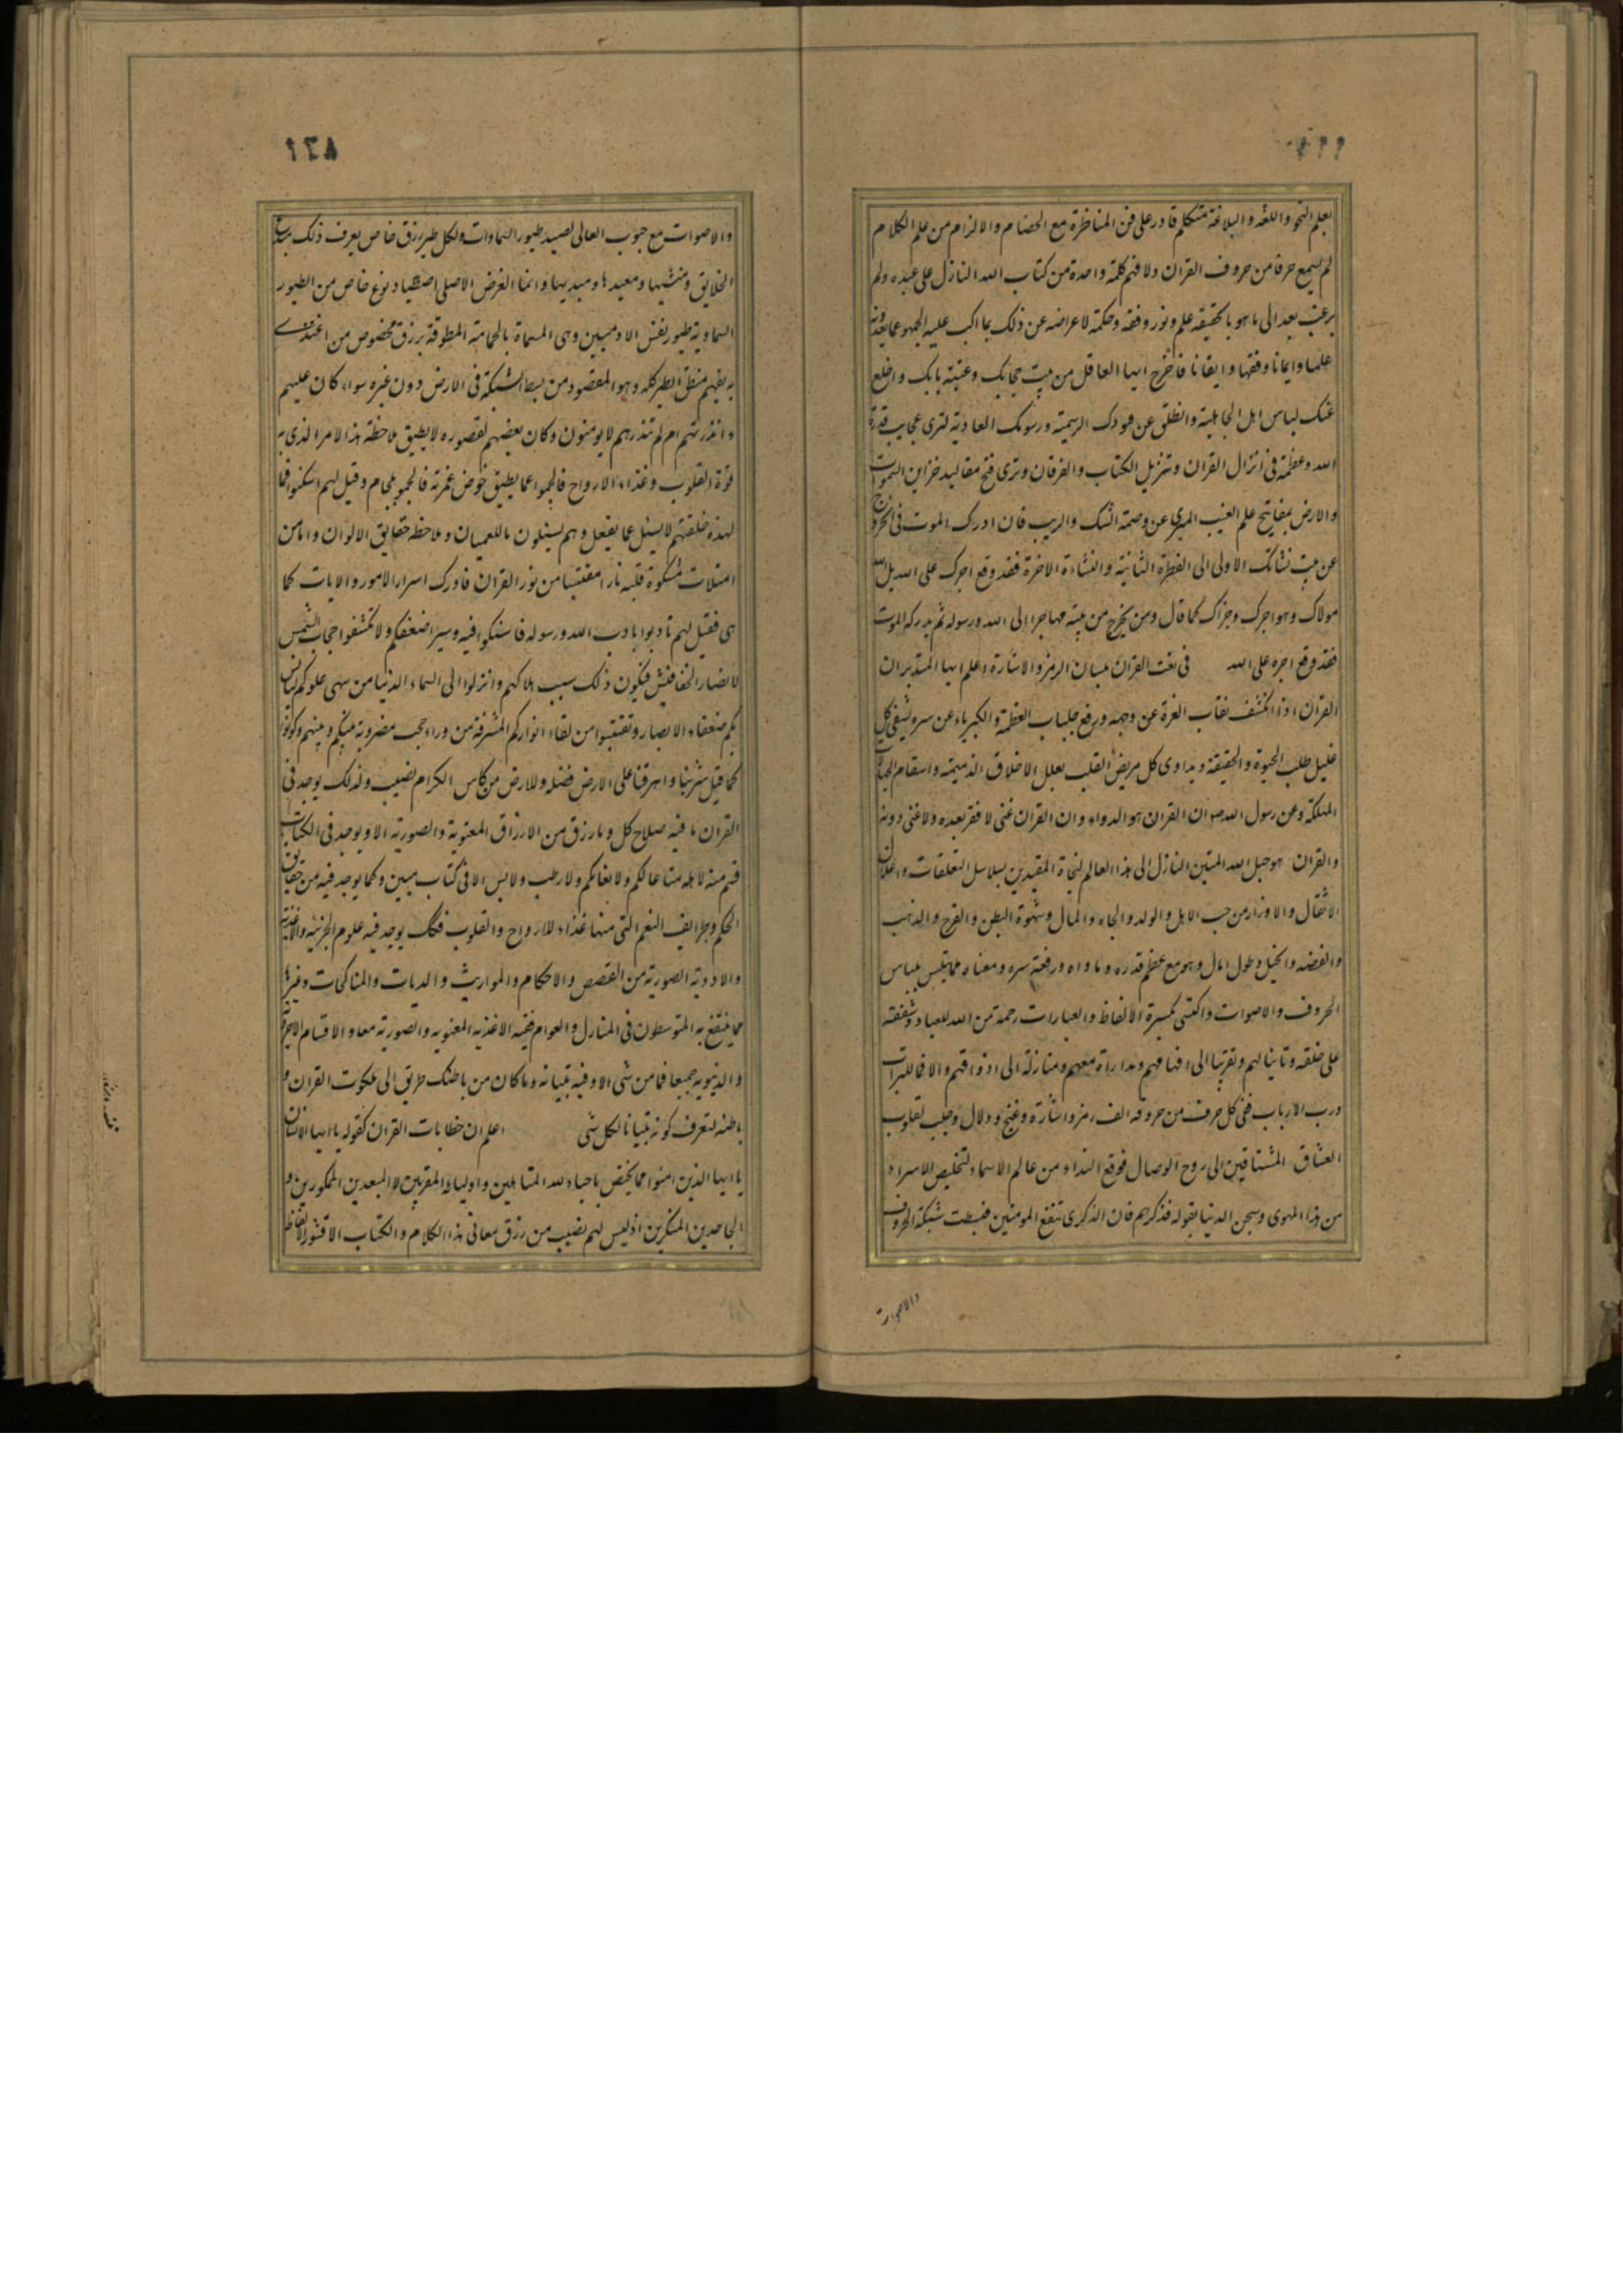 بعلم النحو واللغه والبلاغة متكلم قادر على فن المناظرة مع الخصام والالزام من علم الكلام
لم يسمع حرفا من حروف القران ولا فهم كلمة واحدة من كتاب الله النازل على عبده ولم
يرغب بعد الى ما هو بالحقيقه علم ونور وفقه وحكمة لاعراضه عن ذلك بما اكب عليه الجمهور مما يعدونه
علما وايمانا وفقها وايقانا فاخرج ايها العاقل من بيت حجابك وعتبة بابك واخلع
عنك لباس اهل الجاهلية وانطلق عن قيودك الرسمية ورسومك العادية لترى عجايب قدرة
الله وعظمة فى انزال القران وتنزيل الكتاب والفرقان وترى فتح مقاليد خزاين السموات
والارض بمفاتيح علم الغيب المبرى عن وصمة الشك والريب فان ادرك الموت فى الخروج
عن بيت نشاتك الاولى الى الفطرة الثانية والنشاءة الاخرة فقد وقع اجرك على الله بل الله
مولاك وهو اجرك وجزاك كما قال ومن يخرج من بيته مهاجرا الى الله ورسوله ثم يدركه الموت
فقد وقع اجره على الله فى نعت القران بلسان الرمز والاشارة اعلم ايها المتدبر ان
القران اذا انكشف نقاب العزة عن وجهه ورفع جلباب العظمة والكبرياء عن سره يشفى كل
عليل طلب الحيوة والحقيقة ويداوى كل مريض القلب بعلل الاخلاق الذميمة واسقام الجهالات
المهلكة وعن رسول الله ص ان القران هو الدواء وان القران غنى لا فقر بعده ولا غنى دونه
والقران هو حبل الله المتين النازل الى هذا العالم لنجاة المقيدين بسلاسل التعلقات واغلال
الاثقال والاوزار من حب الاهل والولد والجاه والمال وشهوة البطن والفرج والذهب
والفضه والخيل وطول امال وهو مع عظم قدره وماواه ورفعة سره ومعناه مما يتلبس بلباس
الحروف والاصوات واكتسى بكسوة الالفاظ والعبارات رحمة من الله للعباد وشفقته
على خلقه وتانيسا لهم وتقريبا الى افهامهم ومداراة معهم ومنازلة الى اذواقهم والا فما للتراب
ورب الارباب ففى كل حرف من حروفه الف رمز واشارة وغنج ودلال وجلب لقلوب
العشاق المشتاقين الى روح الوصال فوقع النداء من عالم الاسماء لتخليص الاسراء
من هذا المهوى وسجن الدنيا بقوله فذكرهم فان الذكرى تنفع المومنين فبسطت شبكة الحروف
والاصوات
١٣٨
والاصوات مع حبوب المعالى لصيد طيور السماوات ولكل طير رزق خاص يعرف ذلك مبدع
الخلايق ومنشيها ومعيدها ومبديها وانما الغرض الاصلى اصطياد نوع خاص من الطيور
السماوية طيور نفس الادميين وهى المسماة بالحمامة المطوقة برزق مخصوص من اغتذى
به يفهم منطق الطير كله وهو المقصود من بسط الشبكة فى الارض دون غيره سواء كان عليهم
ءانذرتهم ام لم تنذرهم لا يومنون وكان بعضهم لقصوره لا يطيق ملاحظة هذا الامر الذى به
قوة القلوب وغذاء الارواح فالجموا عما لم يطيق خوض غمرته فالجموا بلجام وقيل لهم اسكتوا فما
لهذه خلقتم لا يسئل عما يفعل وهم يسئلون ما للعميان وملاحظة حقايق الالوان واما من
امتلات مشكوة قلبه نارا مقتبسا من نور القران فادرك اسرار الامور والايات كما
هى فقيل لهم تادبوا باداب الله ورسوله فاسكتوا فيه وسيروا ضعفكم ولا تكشفوا حجاب الشمس
لابصار الخفافيش فيكون ذلك سبب هلاكهم وانزلوا الى السماء الدنيا من سمى علوكم ليانس
بكم ضعفاء الابصار وتقتبسوا من لقاء انواركم المشرقة من وراء حجب مضروبة بينكم وبينهم وكونوا
كما قيل شربنا واهرقنا على الارض فضله وللارض من كاس الكرام نصيب ولذلك يوجد فى
القران ما فيه صلاح كل وما رزق من الارزاق المعنوية والصورية الا ويوجد فى الكتاب
قسم منه لا بله متاعا لكم ولانعامكم ولا رطب ولا يابس الا فى كتاب مبين وكما يوجد فيه من حقايق
الحكم وطرايف النعم التى منها غذاء للارواح والقلوب فكك يوجد فيه علوم الجزئيه والاغذية
والادوية الصورية من القصص والاحكام والمواريث والديات والمناكحات وغيرها
مما ينتفع به المتوسطون فى المنازل والعوام ففيه الاغذيه المعنويه والصوريه معا والاقسام الاخروية
والدنيويه جميعا فما من شى الا وفيه تبيانه وما كان من باطنك طريق الى ملكوت القران و
باطنه لتعرف كونه تبيانا لكل شى اعلم ان خطابات القران كقوله يا ايها الانسان
يا ايها الذين امنوا مما يختص باحباء الله المتالهين واولياءه المقربين لا المبعدين الممكورين و
الجاحدين المنكرين اذ ليس لهم نصيب من رزق معانى هذا الكلام والكتاب الا قشور الالفاظ